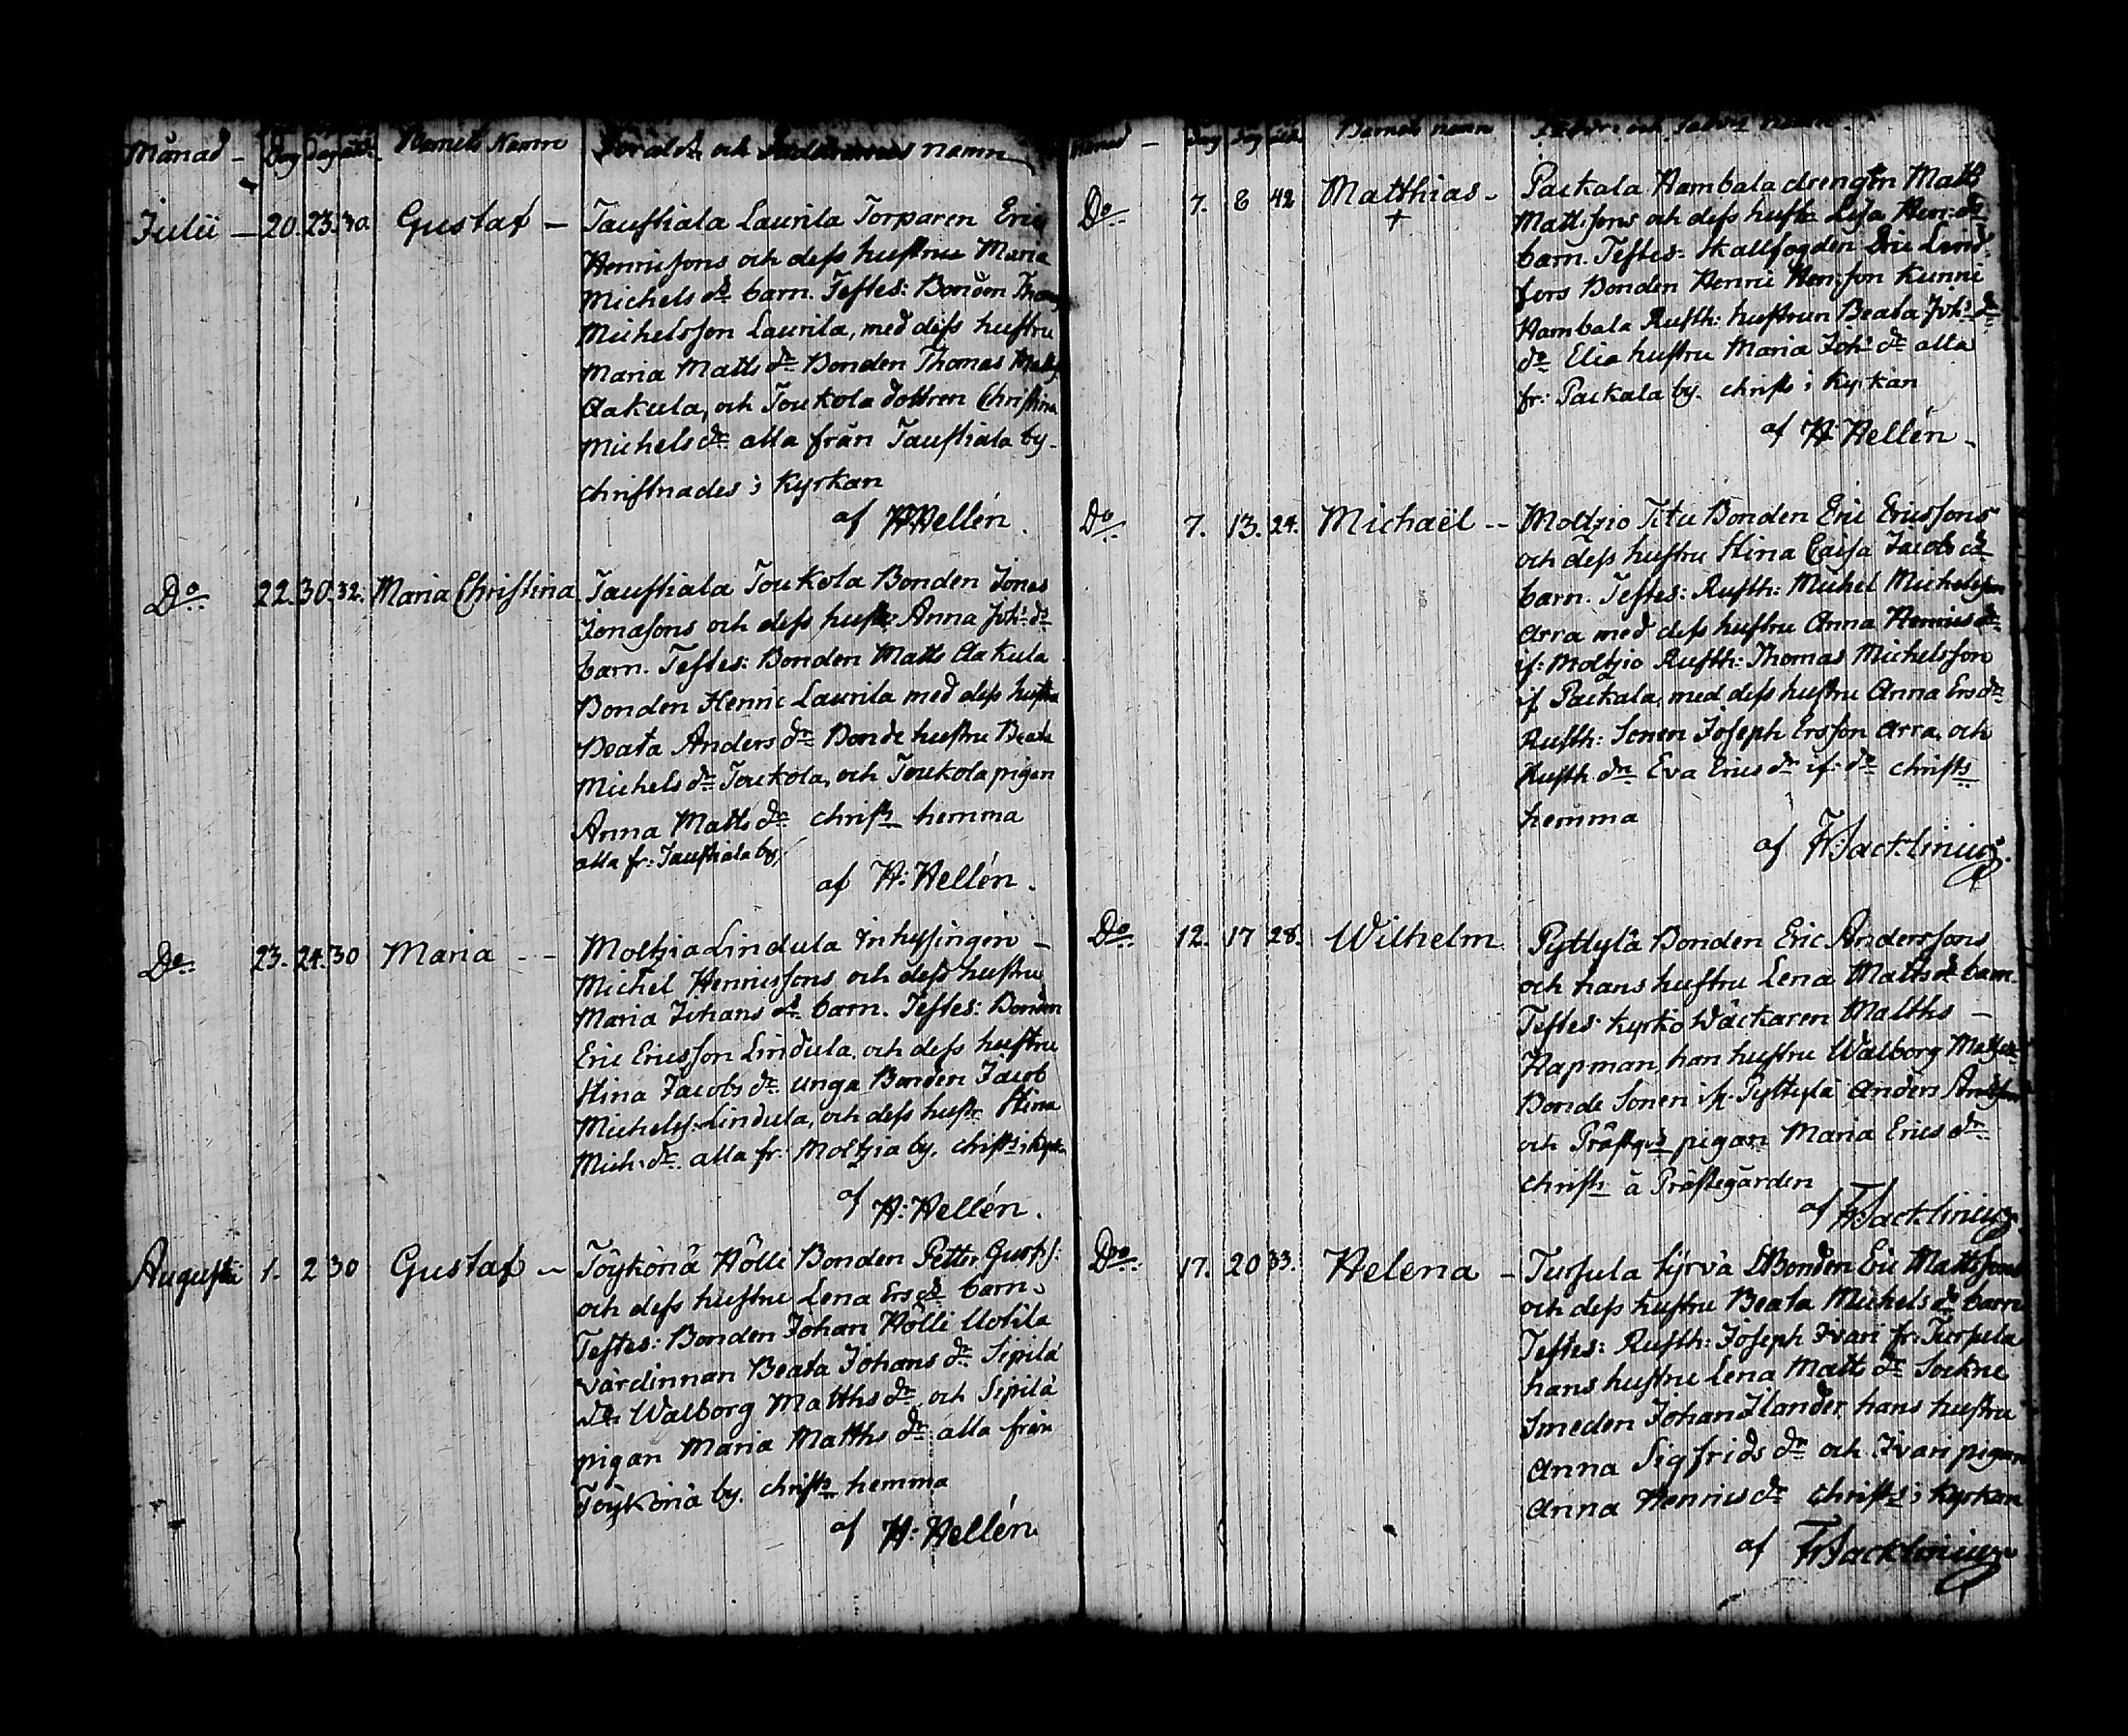 Månad - Dag Dag ålder Barnets Namn Föräld: och Faddrarnas namn
Julii - 20. 23. 30. Gustaf - Taustiala Laurila Torparen Eric
Henricsons och dess hustrus Maria
Michels dr barn. Testes: Bonden Thom
Michelsson Laurila, med dess hustru
Maria Matts dr Bonden Thomas Matts
Aakula, och Toukola dottren Christina
Michels dr alla från Taustiala by.
christnades i Kyrkan
af H. Hellén.
Do 22. 30. 32. Maria Christina. Taustiala Toukola Bonden Jonas
Jonasons och dess hustr: Anna Joh: dr
barn. Testes: Bonden Matts Aakula
Bonden Henric Laurila med dess hustru
Beata Anders dr Bonde hustru Beata
Michels dr Toukola, och Toukola pigan
Anna Matts dr christs hemma
alla fr: Taustiala by.
af H: Hellén.
Do 23. 24. 30 Maria - - Moltzia Lindula Inhysingen -
Michel Henricssons och dess hustru
Maria Johans dr barn. Testes: Bonden
Eric Ericsson Lindula, och dess hustru
Stina Jacobs dr unga Bonden Jacob
Michelss: Lindula, och dess hustr Stina
Mich: dr. alla fr: Moltzia by. christs i Kyrkn
af H: Hellén.
Augusti 1. 2 30 Gustaf - Töykönä Hölli Bonden Petter Gustfs:
och dess hustru Lena Ers dr barn.
Testes: Bonden Johan Hölli Uotila
värdinnan Beata Johans dr. Sipilä
dr Walborg Matths dr och Sipilä
pigan Maria Matths dr alla från
Töykönä by. christs hemma
af H: Hellén.
Månad - Dag Dag ålder Barnets namn
Do 7. 8 42 Matthias - Packala Hambala drengen Matts
+ Mattssons och dess hustr Lisa Henr: dr
barn. Testes: Skallfogden Eric Lind-
fors Bonden Henric Henrsson Kunni
Hambala Rusth: hustrun Beata Joh: dr
do Elia hustru Maria Joh: dr alla
fr: Packala by. christs i Kyrkan
af H: Hellén -
Do 7. 13. 24. Michaël - - Moltzio Titu Bonden Eric Ericssons
och dess hustru Stina Caisa Jacobs dr
barn. Testes: Rusth: Michel Michelsson
Arra med dess hustru Anna Henrics dr
if: Moltzio Rusth: Thomas Michelsson
if Packala, med dess hustru Anna Ers dr
Rusth: Sonen Joseph Ersson Arra, och
Rusth dn Eva Erics dr if: do christs
hemma
af F Backlinius.
Do 12. 17 28. Wilhelm. Pyttylä Bonden Eric Anderssons
och hans hustru Lena Matts dr barn.
Testes: Kyrko Wäckaren Matths -
Hapman, han hustru Walborg Matts dr
Bonde Sonen if: Pyttylä Anders Andsson
och Prästgds pigan Maria Erics dr
christs å Prästegården
af F Backlinius.
Do: 17. 20 33. Helena - Tursula Kyrvä Bonden Eric Mattssons
och dess hustru Beata Michels dr barn
Testes: Rusth: Joseph Ivari fr: Tursula
hans hustru Lena Matts dr Sockne
Smeden Johan Ilander, hans hustru
Anna Sigfrids dr och Ivari pigan
Anna Henrics dr christs i Kyrkan
af F Backlinius